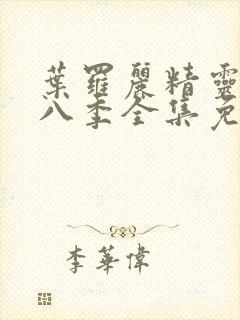 葉羅麗精靈
八季全集免
李華偉